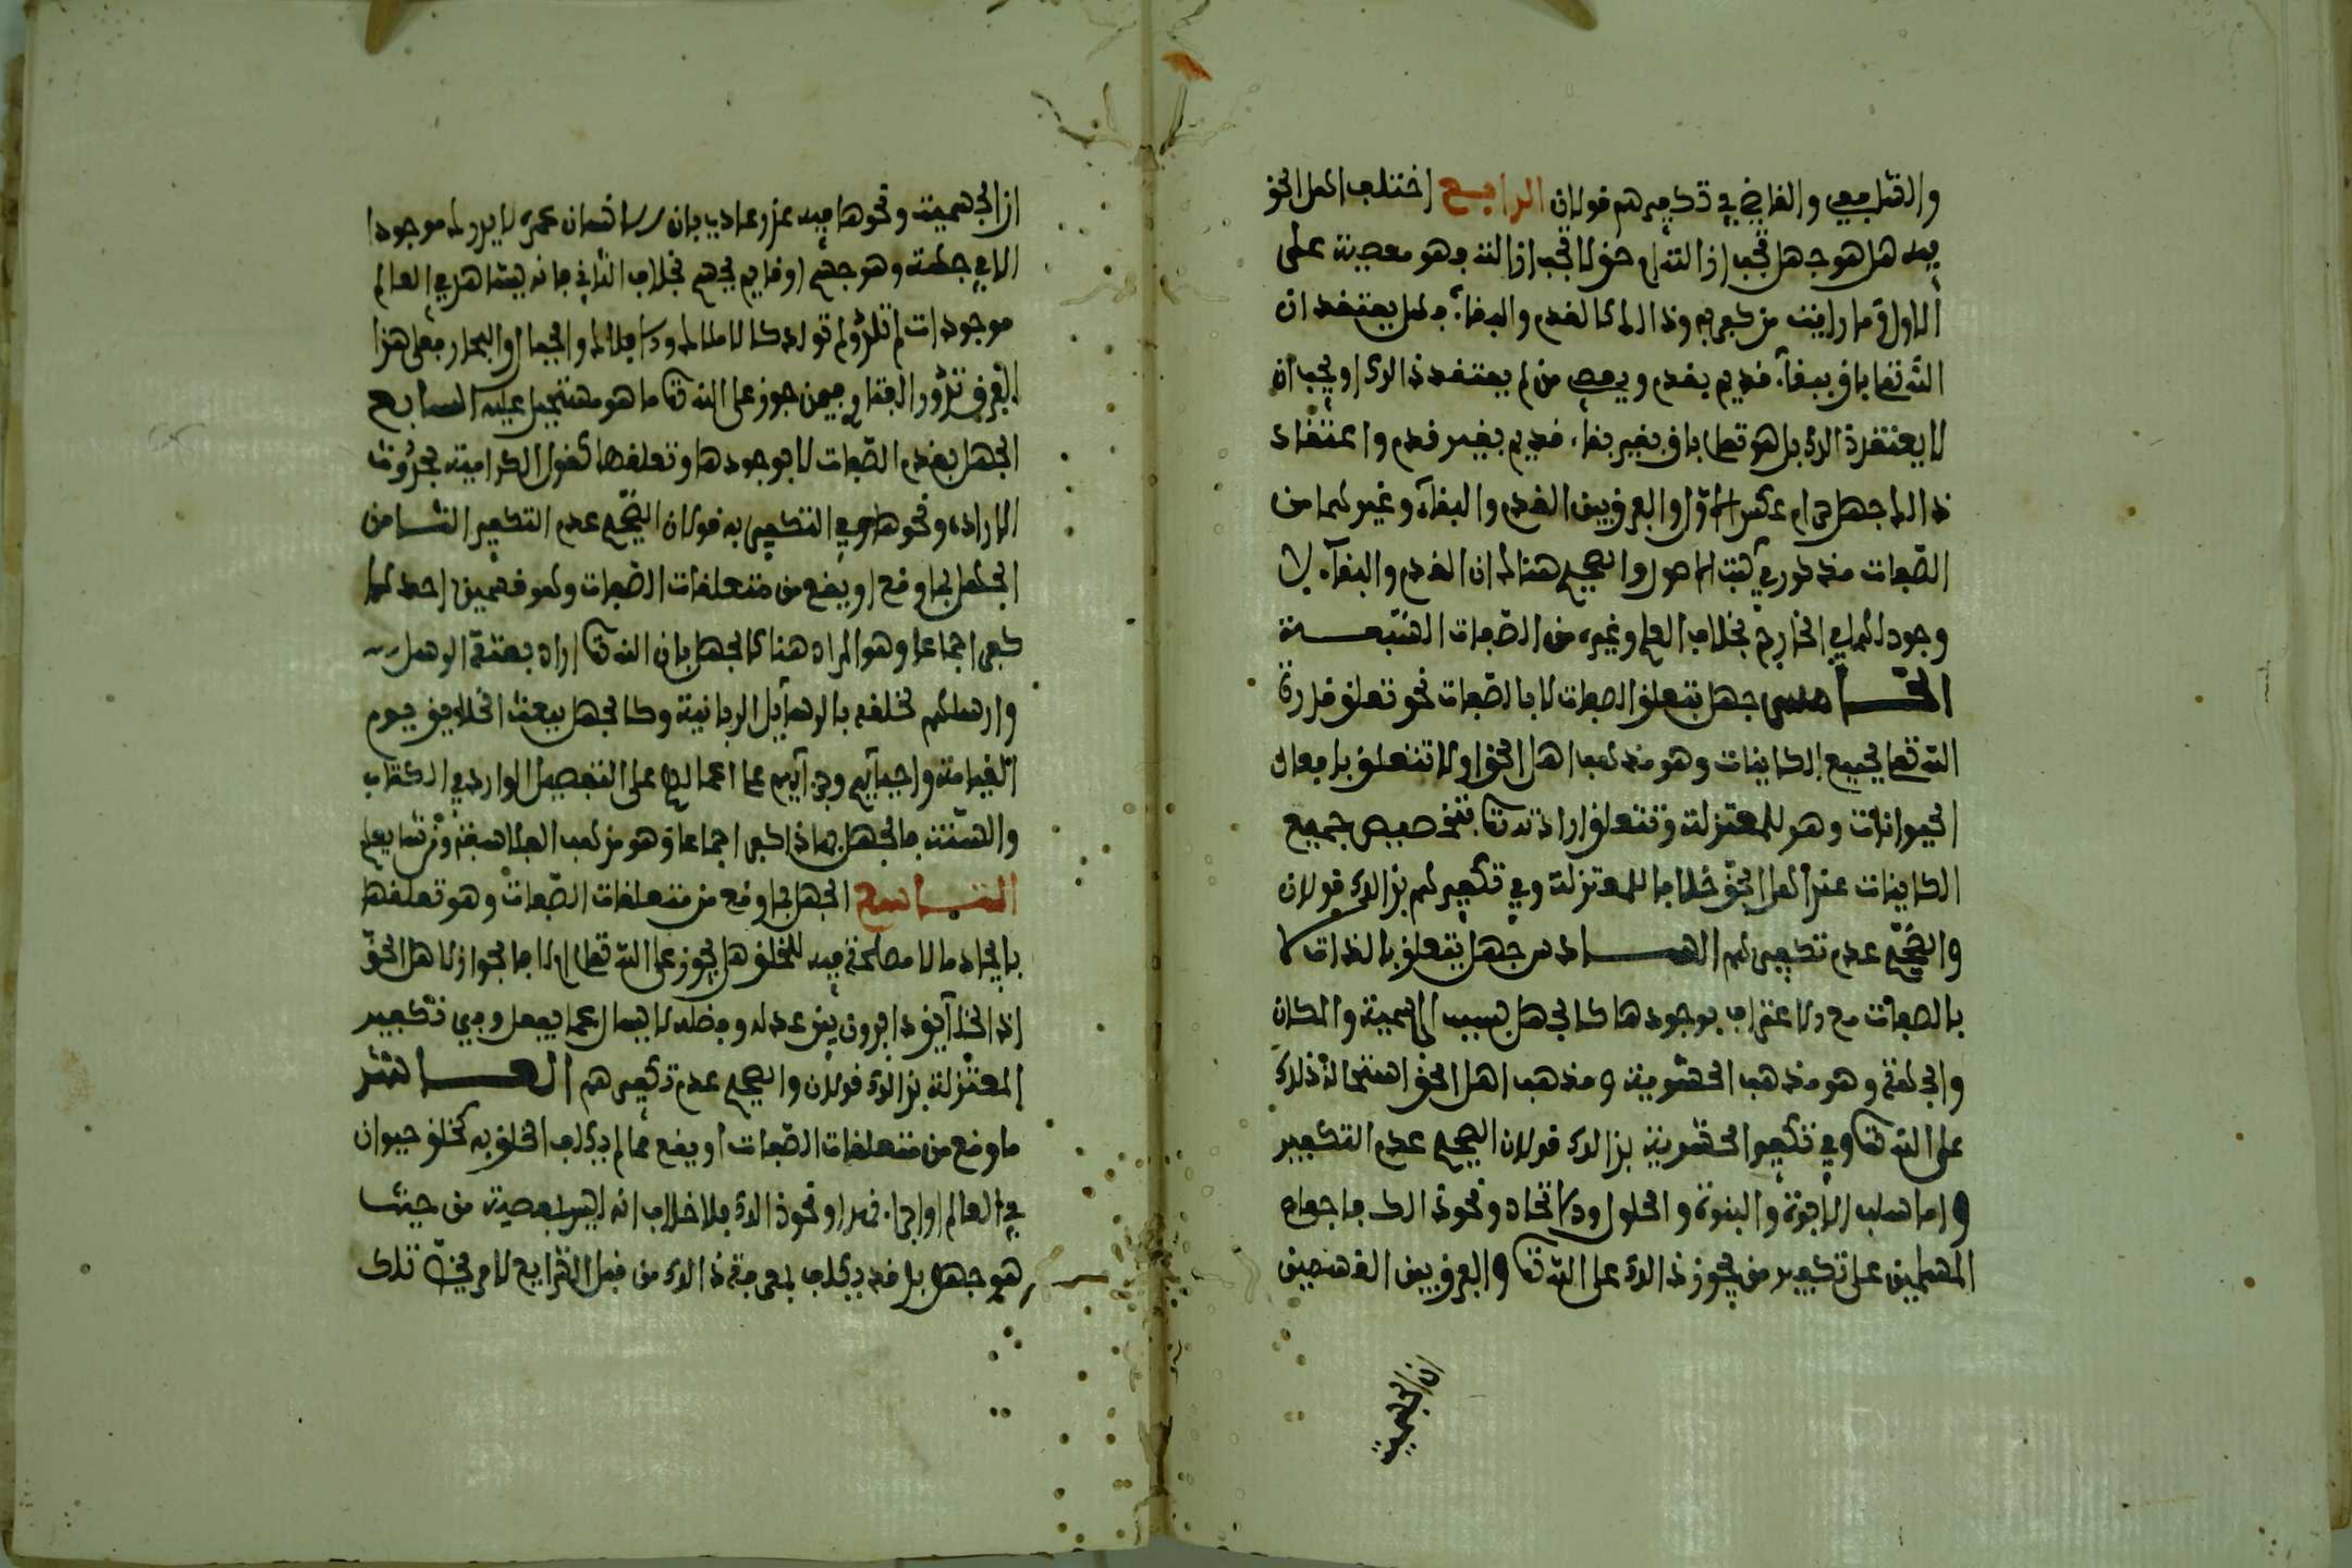 والشافعي والقاضي في تكفيرهم قولان الرابع اختلف اهل الحق
فيه هل هو جهل تجب ازالته او حق لا تجب ازالته وهو معصية على
الاول وما رايت من كفر به وذالك كالقدم والبقاء فهل يعتقد ان
الله تعالى باق ببقاء قديم بقدم ويعصى من لم يعتقد ذالك او يجب ان
لا يعتقد ذالك بل هو تعالى باق بغير بقاء قديم بغير قدم واعتقاد
ذالك جهل حرام عكس الاول والفرق بين القدم والبقاء وغيرهما من
الصفات مذكور في كتب الاصول والصحيح هنالك ان القدم والبقاء لا
وجود لهما في الخارج بخلاف العلم وغيره من الصفات السبعة
الخامس جهل بتعلق الصفات لا بالصفات نحو تعلق قدرة
الله تعالى بجميع الكاينات وهو مذهب اهل الحق او لا تتعلق بافعال
الحيوانات وهو للمعتزلة وتتعلق ارادته تعالى بتخصيص جميع
الكاينات عند اهل الحق خلافا للمعتزلة وفي تكفيرهم بذالك قولان
والصحيح عدم تكفيرهم السادس جهل يتعلق بالذات لا
بالصفات مع الاعتراف بوجودها كالجهل بسبب الجسمية والمكان
والجهة وهو مذهب الحشوية ومذهب اهل الحق استحالة ذلك
على الله تعالى وفي تكفير الحشوية بذالك قولان الصحيح عدم التكفير
واما سلب الابوة والبنوة والحلول والاتحاد ونحو ذالك فاجماع
المسلمين على تكفير من يجوز ذالك على الله تعالى والفرق بين القسمين
ان الجسمية
ان الجسمية ونحوها فيه عذر عادي فان الانسان عمره لا يدرك موجودا
الا في جهة وهو جسم او قايم بجسم بخلاف الثاني فانه يشاهد في العالم
موجودات لم تلد ولم تولد كالاملاك والافلاك والجبال والبحار فعلى هذا
الفرق تدور الفتاوي فيمن جوز على الله تعالى ما هو مستحيل عليه السابع
الجهل بقدم الصفات لا بوجودها وتعلقها كقول الكرامية بحدوث
الارادة ونحوها وفي التكفير به قولان الصحيح عدم التكفير الثامن
الجهل بما وقع او يقع من متعلقات الصفات وهو قسمين احدهما
كفر اجماعا وهو المراد هنا كالجهل بان الله تعالى اراد بعثة الرسل
وارسلهم لخلقه بالرسايل الربانية وكالجهل ببعث الخلايق يوم
القيامة واحيايهم وجزايهم على اعمالهم على التفصيل الوارد في الكتاب
والسنة فالجهل بهاذا كفر اجماعا وهو مذهب الفلاسفة ومن تبعهم
التاسع الجهل بما وقع من متعلقات الصفات وهو تعلقها
بايجاد ما لا مصلحة فيه للخلق هل يجوز على الله تعالى او لا فالجواز لاهل الحق
اذ الخلايق دايرون بين عدله وفضله لا يسال عما يفعل وفي تكفير
المعتزلة بذالك قولان والصحيح عدم تكفيرهم العاشر
ما وقع من متعلقات الصفات او يقع مما لم يكلف الخلق به كخلق حيوان
في العالم او اجراء نهر او نحو ذالك فلا خلاف انه ليس بمعصية من حيث
هو جهل بل قد يكلف بمعرفة ذالك من قبل الشرايع لامر يخص تلك